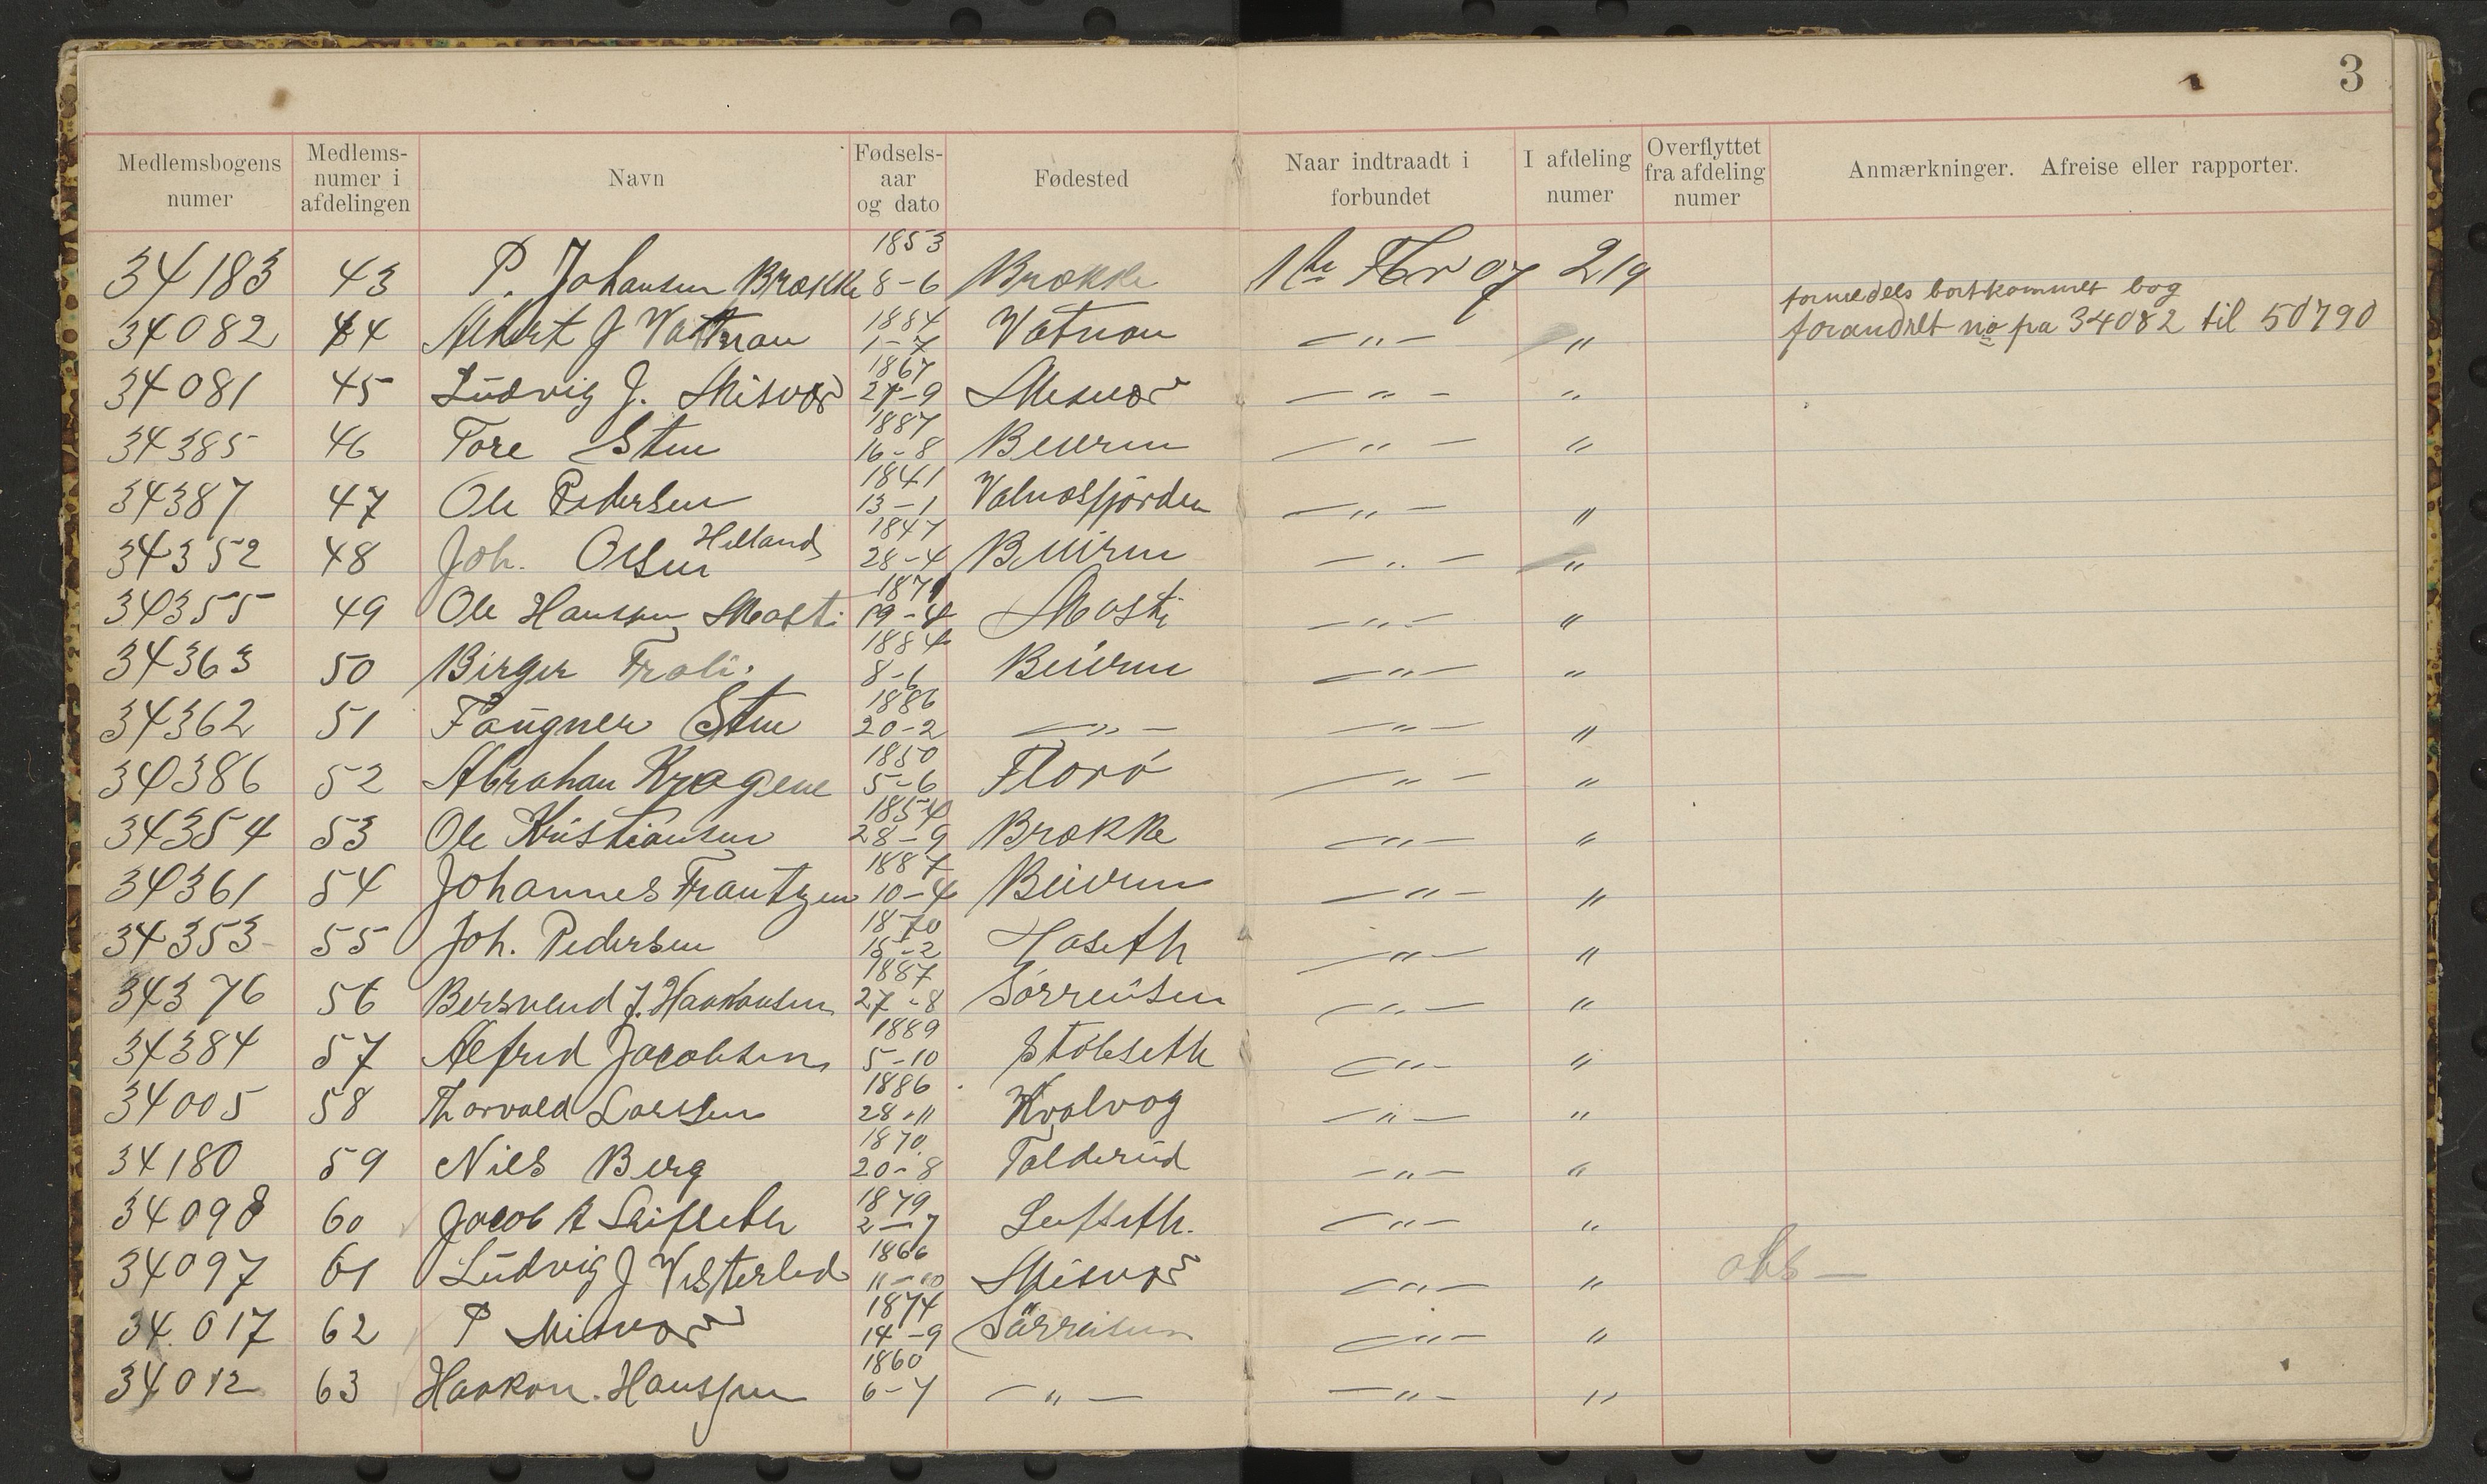 3
Medlemsbogens numer
Medlems-numer i afdelingen
Navn
Fødsels-aar og dato
Fødested
Naar indtraadt i forbundet
I afdeling numer
Overflyttet fra afdeling numer
Anmærkninger. Afreise eller rapporter.
34183 43 P. Johansen Brække 1853 8-6 Brække 1ste Fbr 07 219
formedels bortkommet bog
34082 44 Albert J Vattnan 1884 1-7 Vatnan —"— " forandret no pa 34082 til 50790
34081 45 Ludvig J. Misvær 1867 27-9 Misvær —"— "
34385 46 Tore Sten 1887 16-8 Beiern —"— "
34387 47 Ole Pedersen 1841 13-1 Valnæsfjorden —"— "
34352 48 Joh. Olsen Helland 1847 28-4 Beiern —"— "
34355 49 Ole Hanssen Mosti 1871 19-4 Mosti —"— "
34363 50 Birger Troli 1884 8-6 Beiern —"— "
34362 51 Faugner Sten 1886 20-2 —"— —"— "
34386 52 Abraham Krogene 1850 5-6 Florö —"— "
34354 53 Ole Kristiansen 1854 28-9 Brække —"— "
34361 54 Johannes Frantzen 1887 10-4 Beiern —"— "
34353 55 Joh. Pedersen 1870 15-2 Hoseth —"— "
34376 56 Bersvend J. Haakonsen 1887 27-8 Sörreisen —"— "
34384 57 Alfred Jacobsen 1889 5-10 Stölseth —"— "
34005 58 Thorvald Larssen 1886 28-11 Kvalvog —"— "
34180 59 Nils Berg 1870 20-8 Tolderud —"— "
34098 60 Jacob A Leifseth 1879 2-7 Leifseth. —"— "
34097 61 Ludvig J Vesterled 1866 11-10 Misvær —"— " obs —
34.017 62 P Misvær 1874 14-9 Sörreisen —"— "
34012 63 Haakon. Hanssen 1860 6-7 —"— —"— "